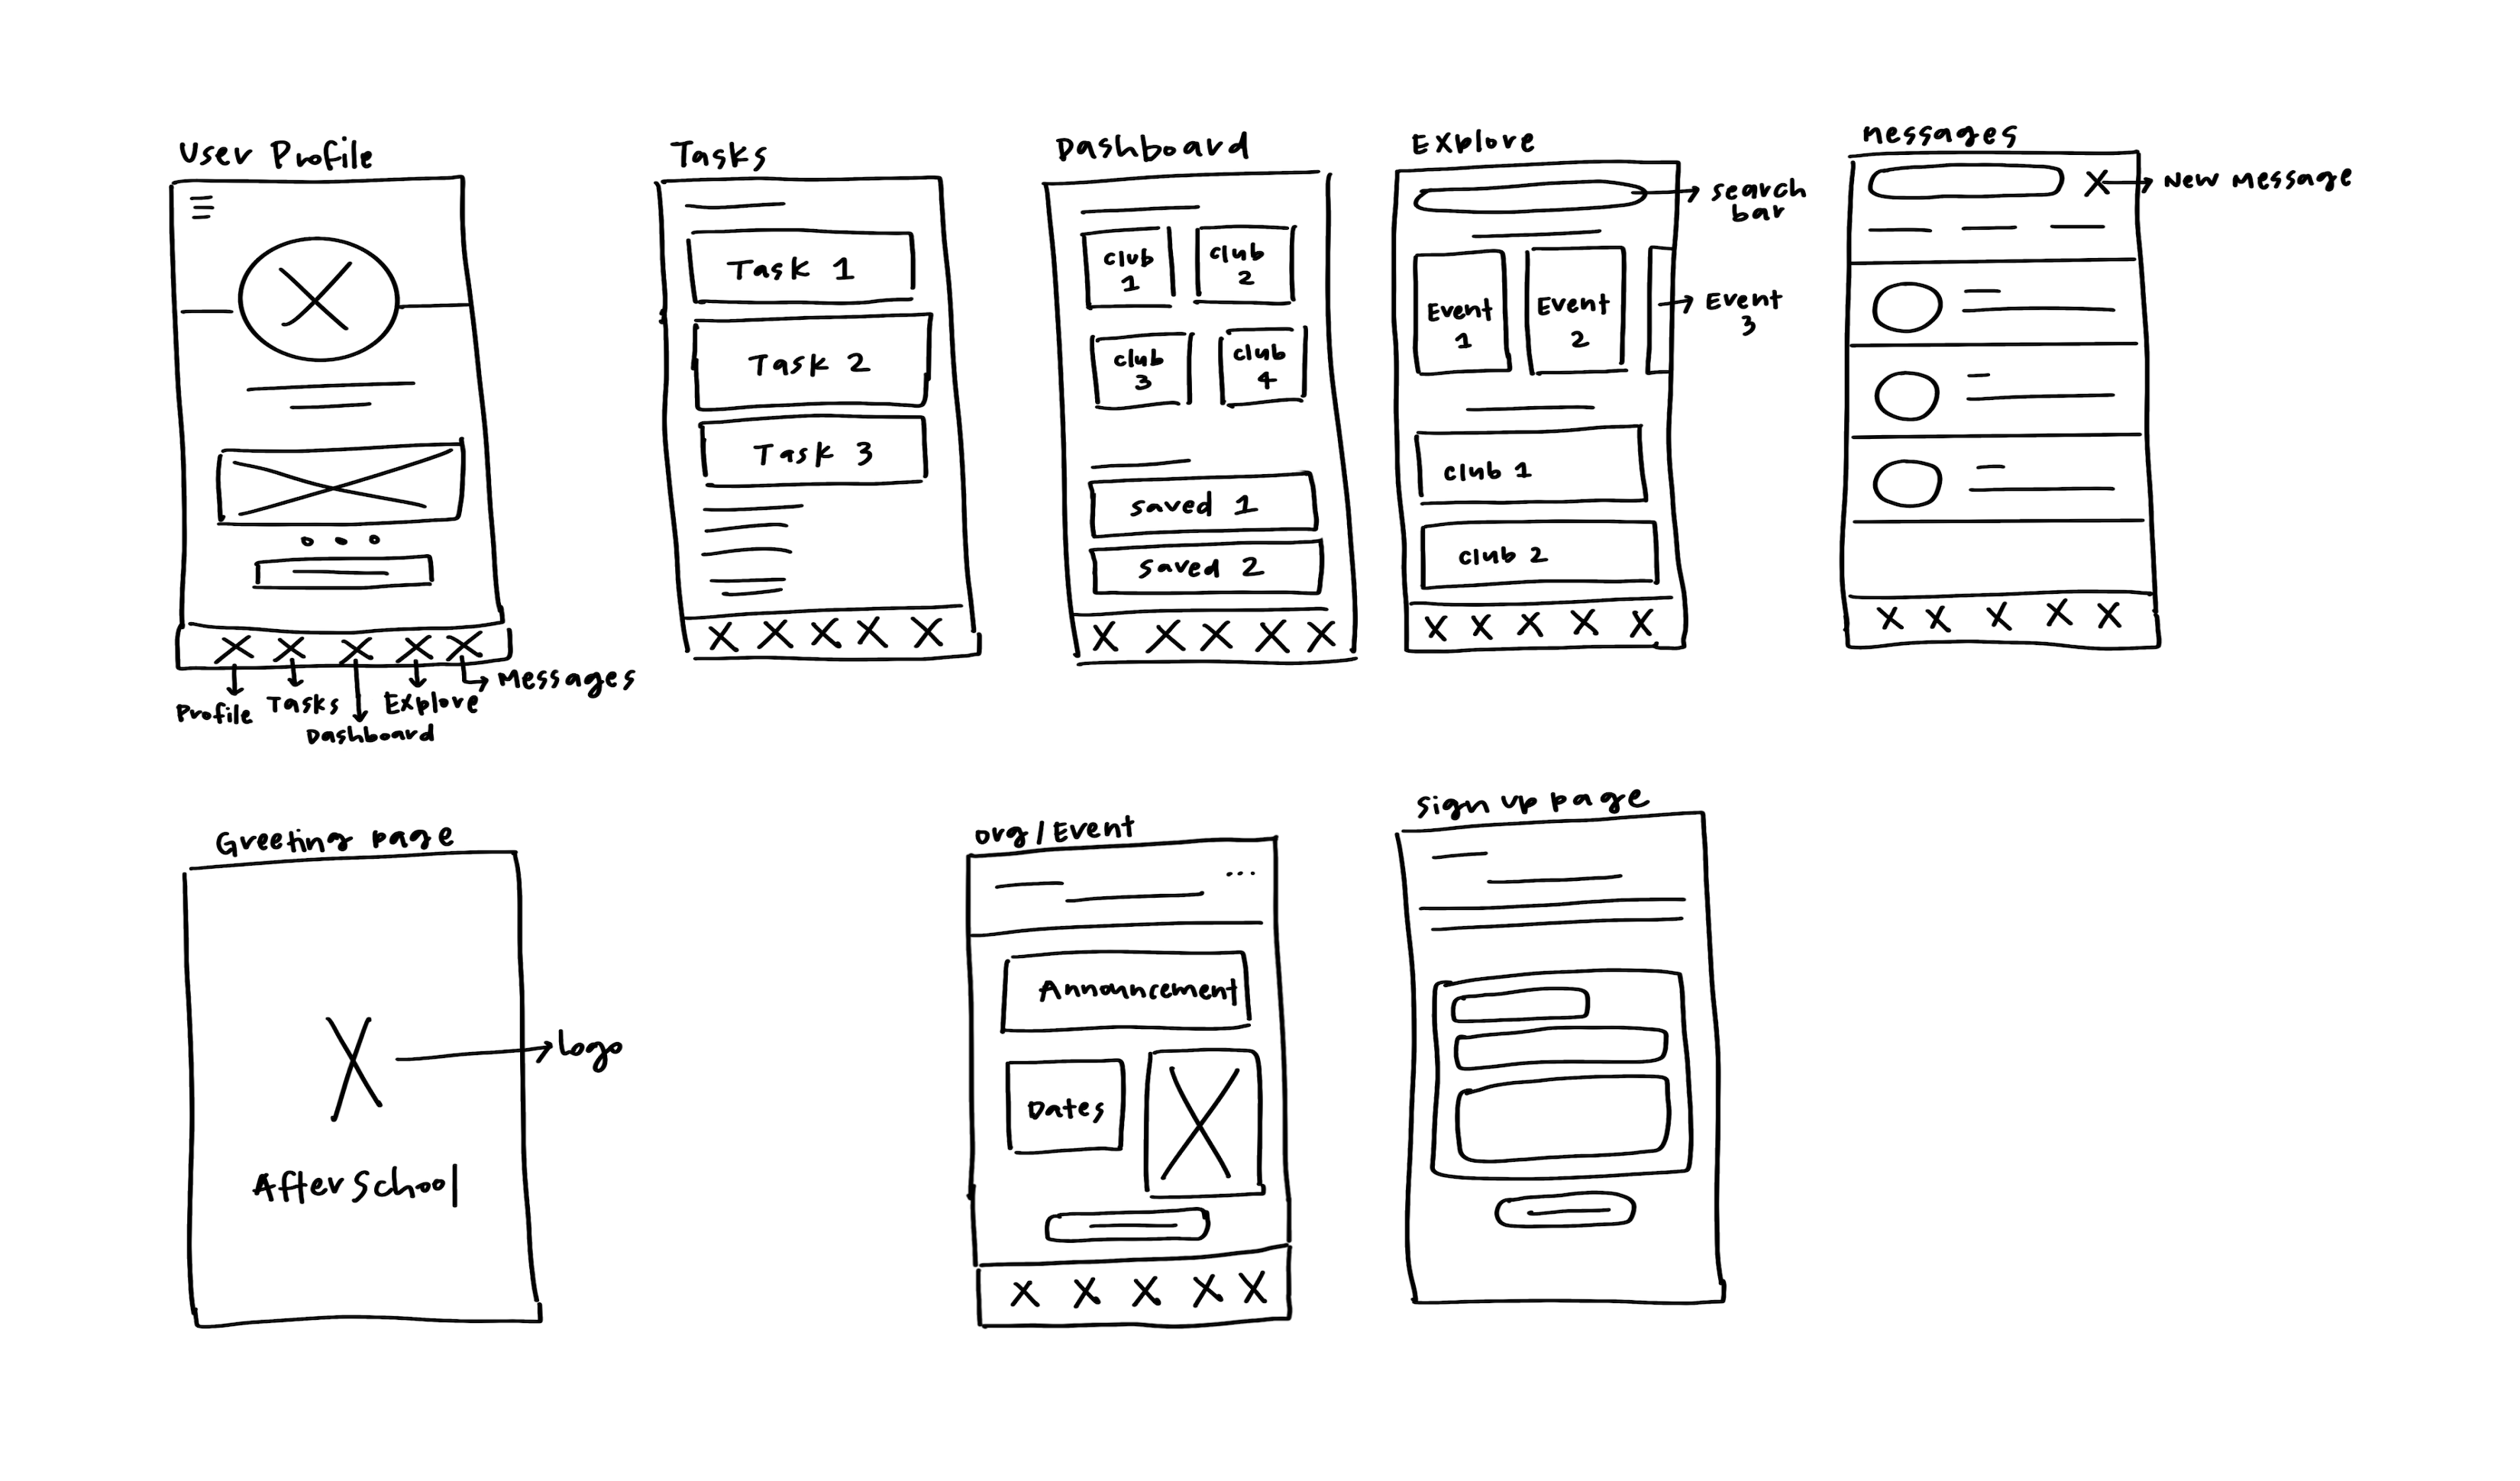 User Profile
Profile
Tasks
Dashboard
Explore
Messages
Tasks
Task 1
Task 2
Task 3
Dashboard
club
1
club
2
club
3
club
4
saved 1
saved 2
Explore
search
bar
Event
1
Event
2
Event
3
club 1
club 2
Messages
New Message
Greeting page
Logo
After School
org/Event
...
Announcement
Dates
Sign up page